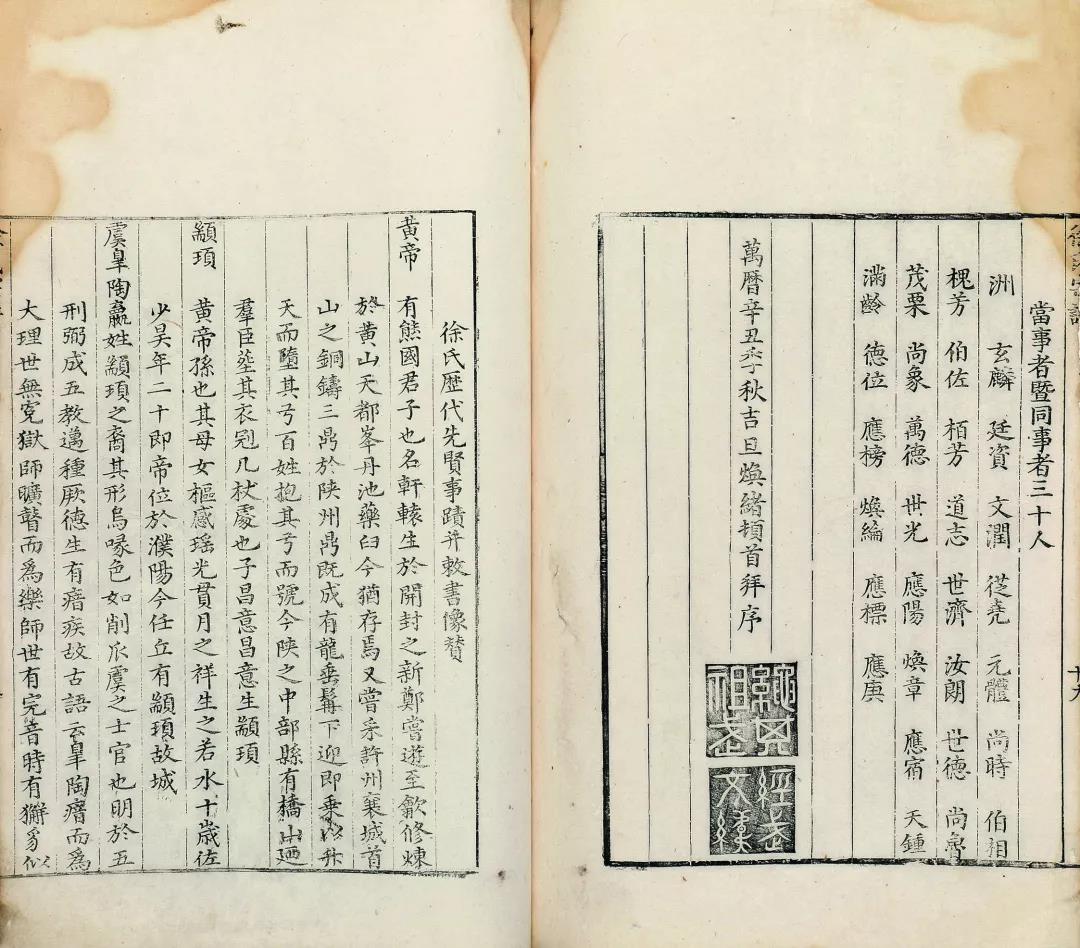 當事者暨同事者三十人
洲 玄麟 廷資 文潤 從堯 元體 尚時 伯相
槐芳 伯佐 栢芳 道志 世濟 汝朗 世德 尚魯
茂栗 尚象 萬德 世光 應陽 煥章 應宿 天鍾
滿齡 德位 應榜 煥綸 應標 應庚
萬曆辛丑季秋吉旦煥緒頓首拜序
經武
文緯
十九
徐氏歷代先賢事蹟并敕書像贊
黃帝 有熊國君子也名軒轅生於開封之新鄭嘗遊至歙修煉
於黃山天都峯丹池藥臼今猶存焉又嘗采許州襄城首
山之銅鑄三鼎於陜州鼎既成有龍垂髯下迎即乗以升
天而墮其弓百姓抱其弓而號今陜之中部縣有橋山廼
羣臣塟其衣冠几杖處也子昌意昌意生顓頊
顓頊 黃帝孫也其母女樞感瑤光貫月之祥生之若水十歲佐
少昊年二十即帝位於濮陽今任丘有顓頊故城
虞臯陶嬴姓顓頊之裔其形鳥喙色如削瓜虞之士官也明於五
刑弼成五教邁種厥德生有瘖疾故古語云臯陶瘖而為
大理世無寃獄師曠瞽而為樂師世有完音時有獬豸似